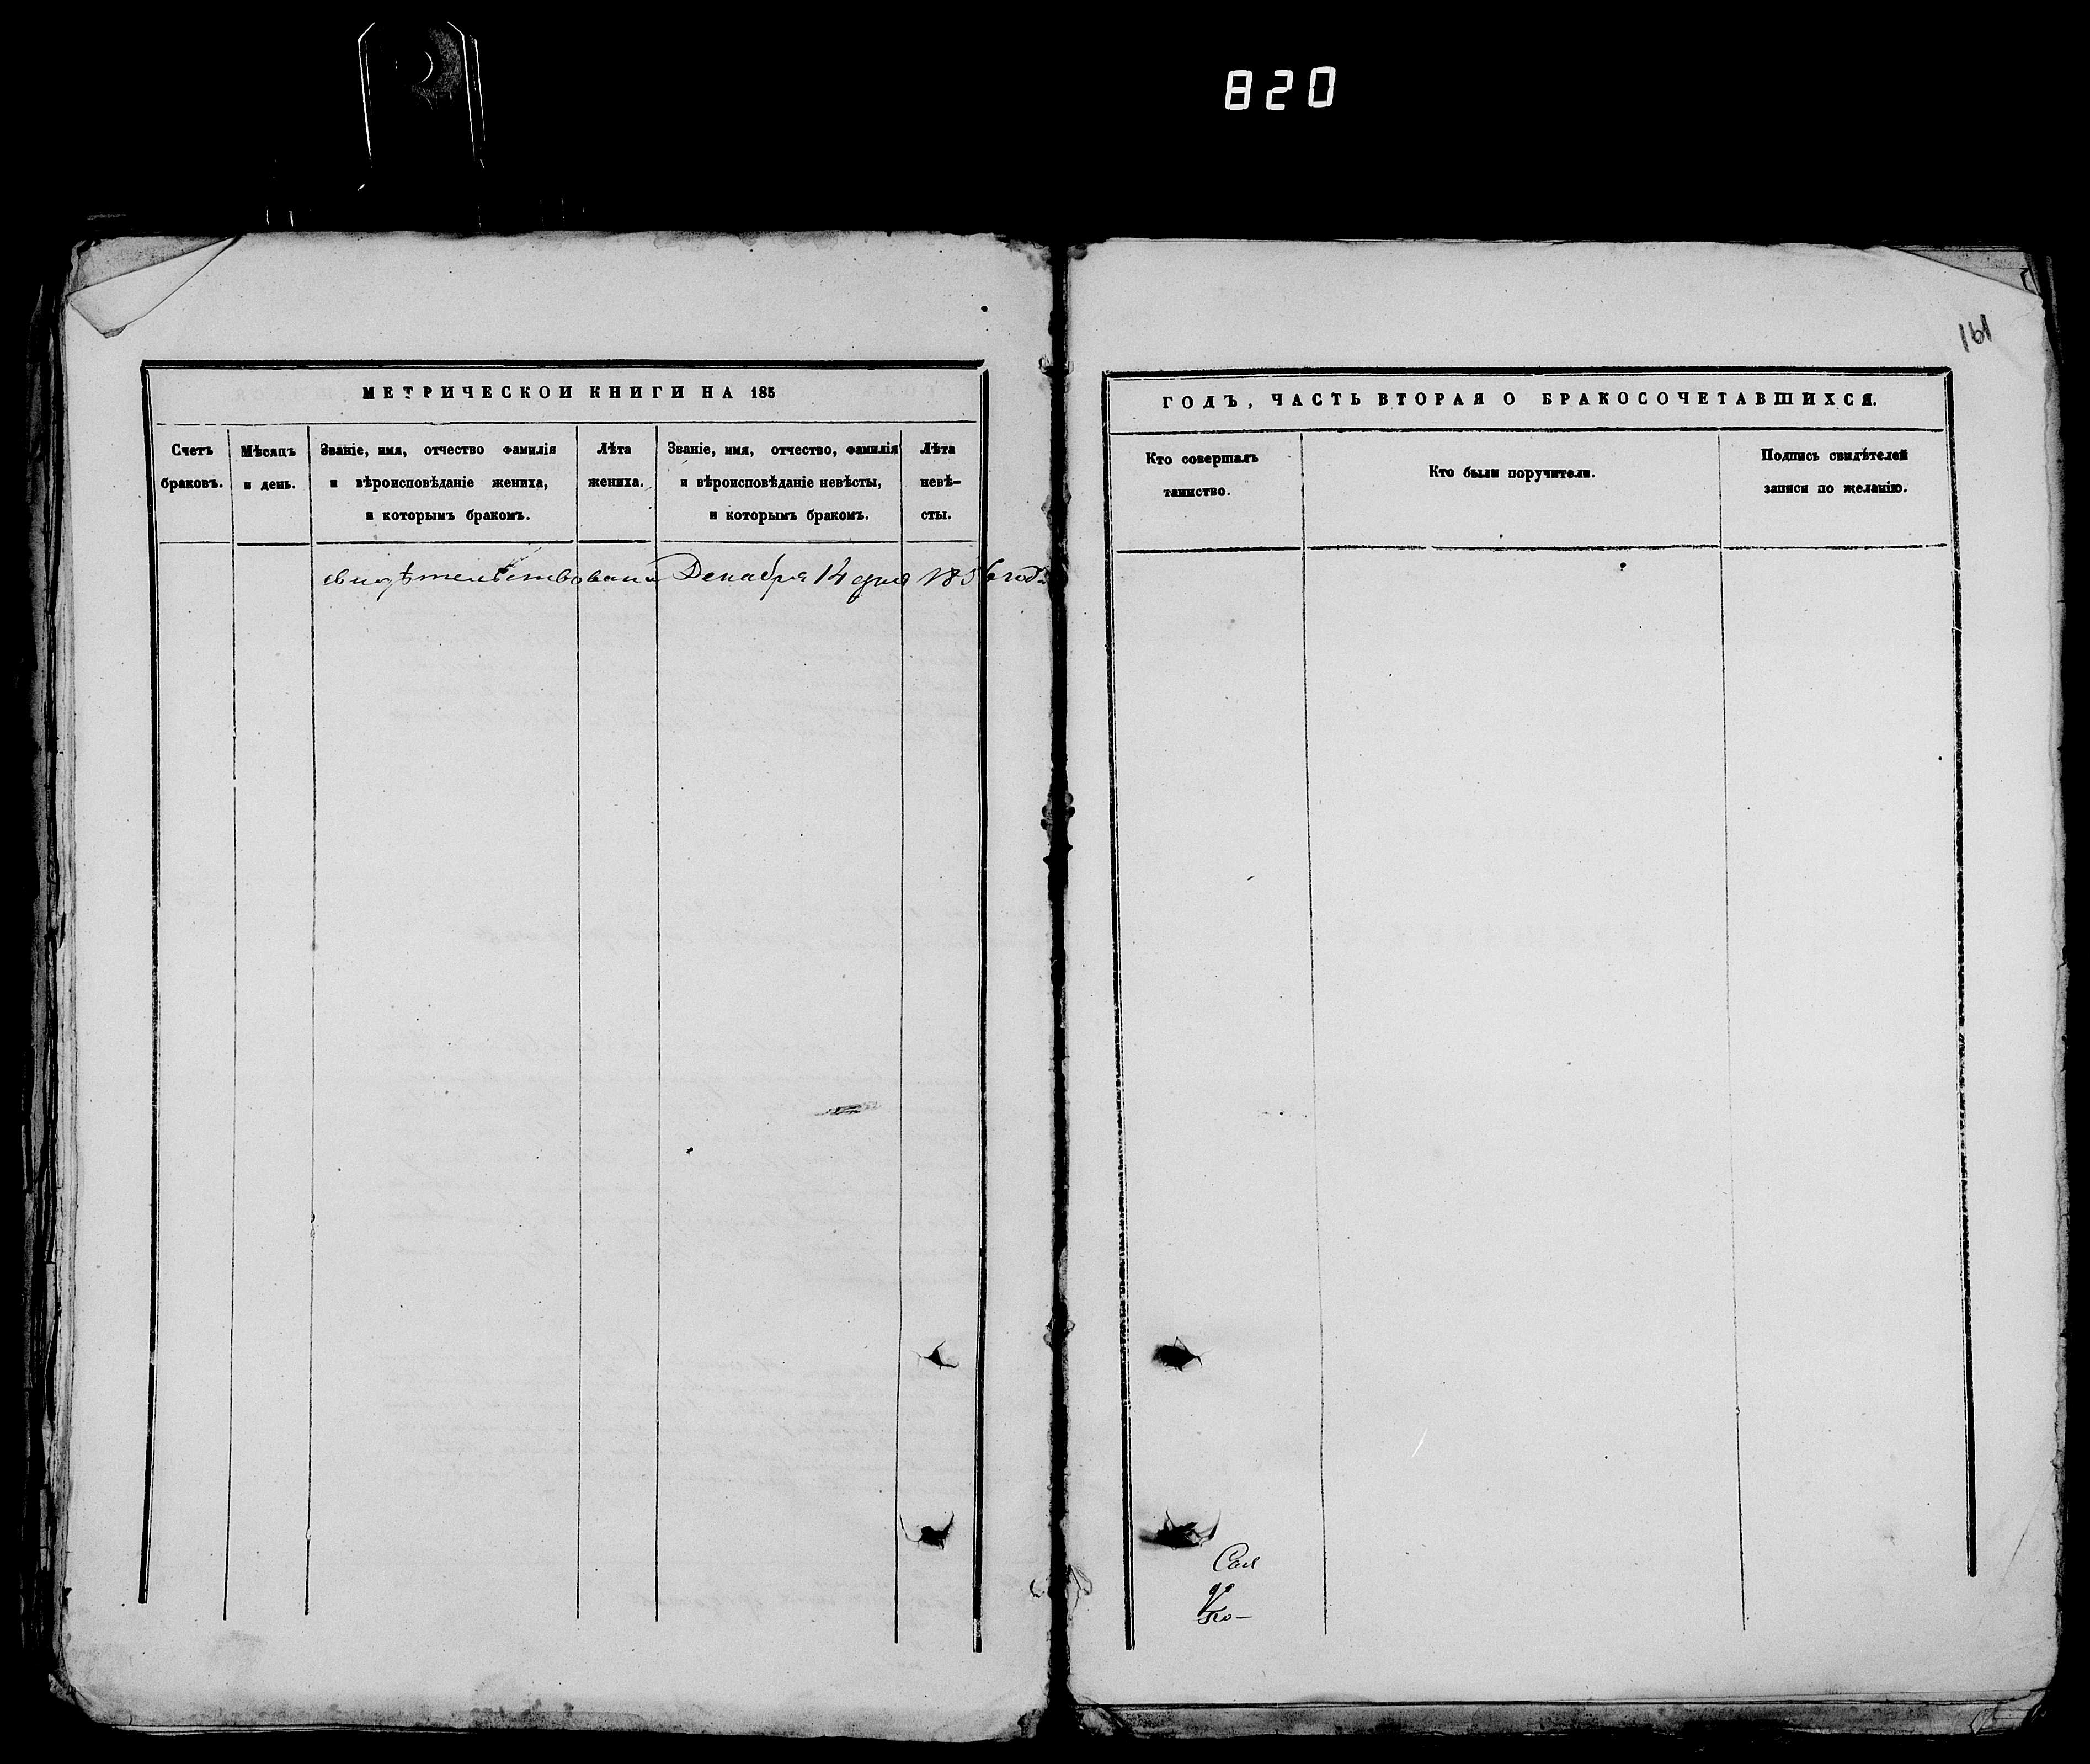 820
161
МЕТРИЧЕСКОИ КНИГИ НА 185
Счетъ браковъ.
Мѣсяцъ и день.
Званіе, имя, отчество фамилія
и вѣроисповѣданіе жениха,
и которымъ бракомъ.
Лѣта жениха.
Званіе, имя, отчество, фамилія
и вѣроисповѣданіе невѣсты,
и которымъ бракомъ.
Лѣта
невѣ-
сты.
свидѣтельствована Декабря 14 дня 1856 года
ГОДЪ, ЧАСТЬ ВТОРАЯ О БРАКОСОЧЕТАВШИХСЯ.
Кто совершалъ
таинство.
Кто были поручители.
Подпись свидѣтелей
записи по желанію.